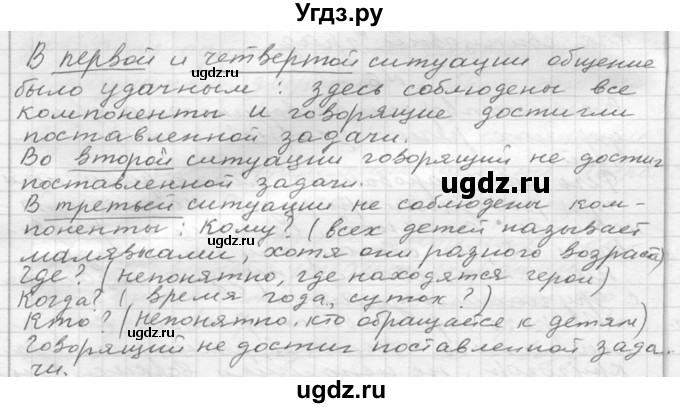 Угдз.ру
В первой и четвертой ситуации общение
было удачным: здесь соблюдены все
компоненты и говорящие достигли
поставленной задачи.
Во второй ситуации говорящий не достиг
поставленной задачи.
В третьей ситуации не соблюдены ком-
поненты: Кому? (всех детей называет
малявками, хотя они разного возраста)
Где? (непонятно, где находятся герои)
Когда? ( время года, суток?)
Кто? (непонятно, кто обращается к детям)
Говорящий не достиг поставленной зада-
чи.
ugdz.ru
ugdz.ru
ugdz.ru
ugdz.ru
ugdz.ru
ugdz.ru
ugdz.ru
ugdz.ru
ugdz.ru